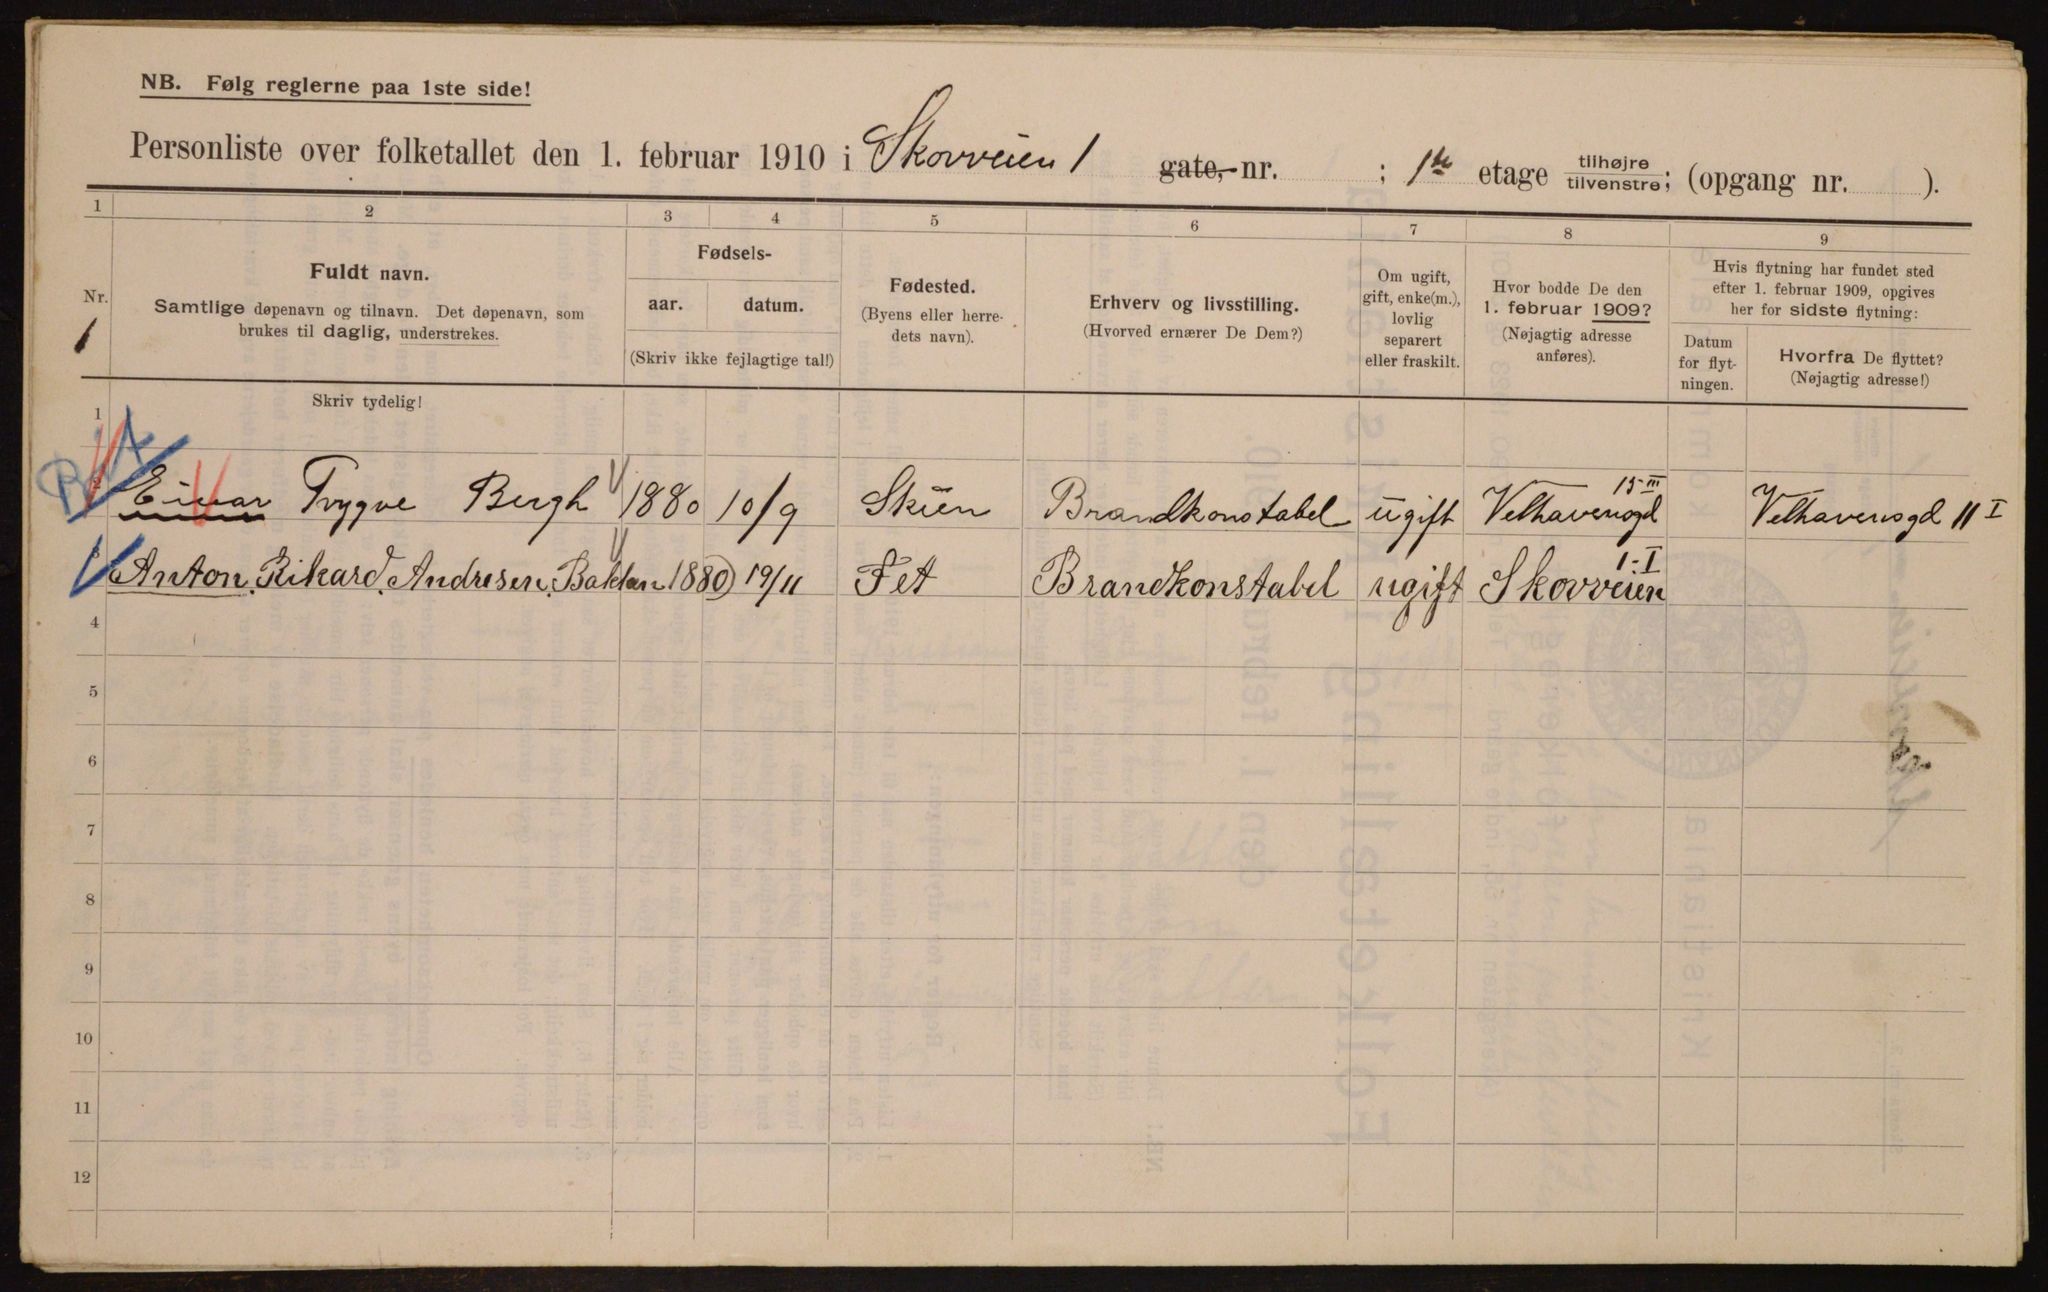 NB. Følg reglerne paa 1ste side!
Personliste over folketallet den 1. februar 1910 i Skovveien 1 gate, nr. ; 1ste etage tilhøjre tilvenstre; (opgang nr. ).
1 2 3 4 5 6 7 8 9
Nr.
1
Fuldt navn.
Samtlige døpenavn og tilnavn. Det døpenavn, som
brukes til daglig, understrekes.
Fødsels-
aar. datum.
(Skriv ikke fejlagtige tal!)
Fødested.
(Byens eller herre-
dets navn).
Erhverv og livsstilling.
(Hvorved ernærer De Dem?)
Om ugift,
gift, enke(m.),
lovlig
separert
eller fraskilt.
Hvor bodde De den
1. februar 1909?
(Nøjagtig adresse
anføres).
Hvis flytning har fundet sted
efter 1. februar 1909, opgives
her for sidste flytning:
Datum
for flyt-
ningen.
Hvorfra De flyttet?
(Nøjagtig adresse!)
Skriv tydelig!
1
2 Eivar Trygve Bergh 1880 10/9 Skien Brandkonstabel ugift Velhavensgd 15 III Velhavensgd 11 I
Anton Rikard Andresen 1880 19/11 Fet Brandkonstabel ugift Skovveien 1-I
4
5
6
7
8
9
10
11
12